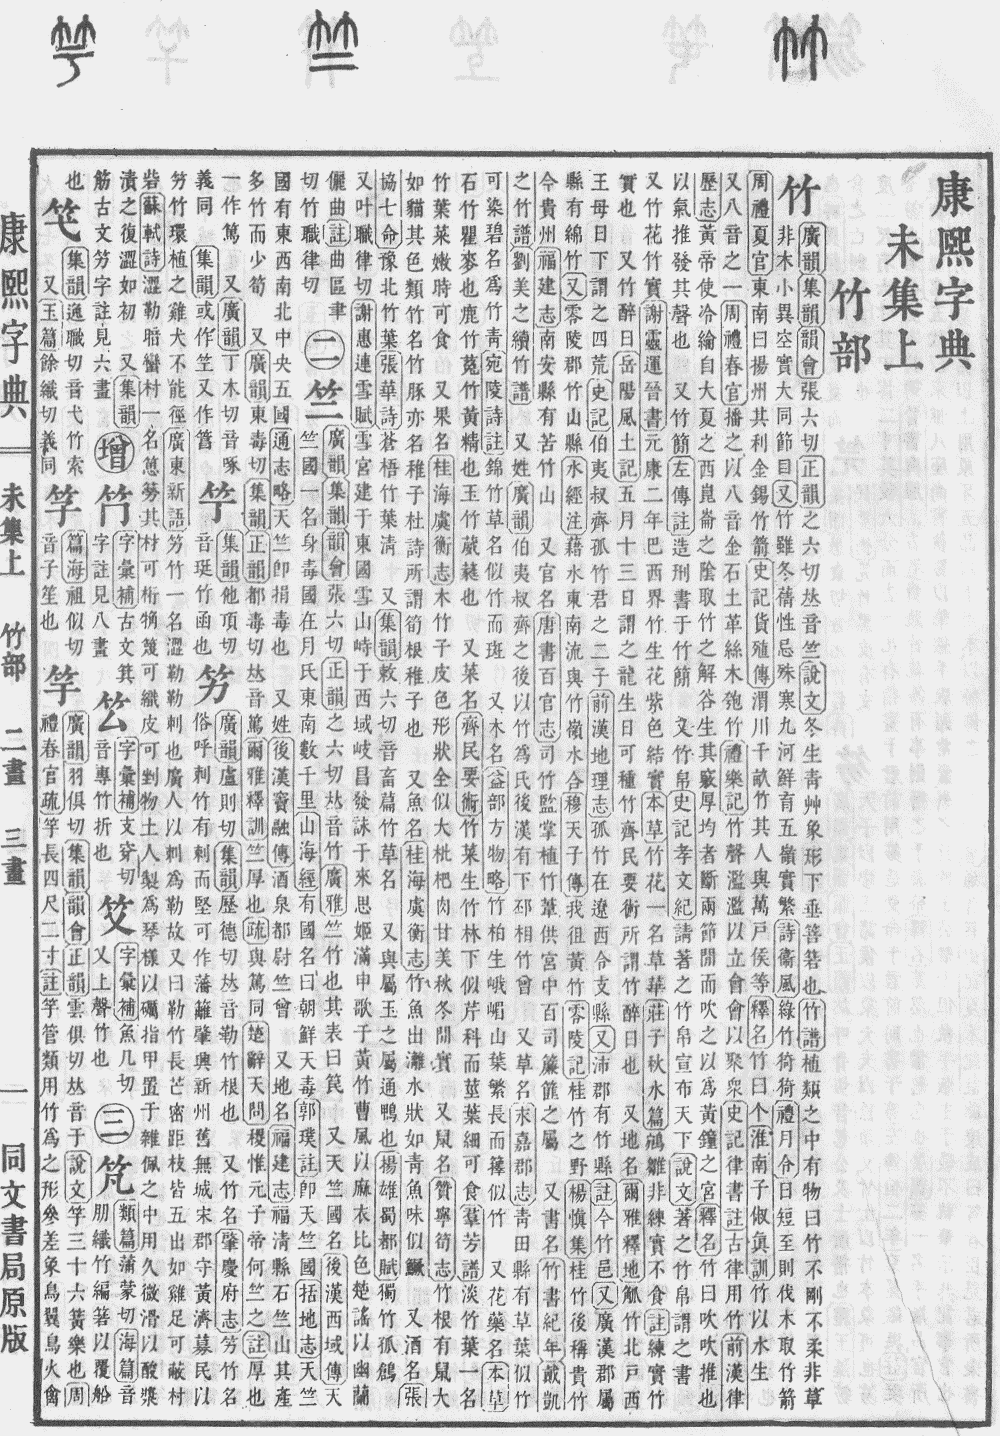 康熙字典
未集上
竹部
竹 廣韻集韻韻會張六切正韻之六切𠀤音竺說文冬生青艸象形下垂箁箬也竹譜植類之中有物曰竹不剛不柔非草
非木小異空實大同節目又竹雖冬蒨性忌殊寒九河鮮育五嶺實繁詩衞風綠竹猗猗禮月令日短至則伐木取竹箭
周禮夏官東南曰揚州其利金錫竹箭史記貨殖傳渭川千畝竹其人與萬戸侯等釋名竹曰个淮南子俶眞訓竹以水生
又八音之一周禮春官播之以八音金石土革絲木匏竹禮樂記竹聲濫濫以立會會以聚衆史記律書註古律用竹前漢律
歷志黃帝使冷綸自大夏之西崑崙之陰取竹之解谷生其竅厚均者斷兩節閒而吹之以爲黃鐘之宮釋名竹曰吹吹推也
以氣推發其聲也 又竹簡左傳註造刑書于竹簡 又竹帛史記孝文紀請著之竹帛宣布天下說文著之竹帛謂之書
又竹花竹實謝靈運晉書元康二年巴西界竹生花紫色結實本草竹花一名草華莊子秋水篇鵷雛非練實不食註練實竹
實也 又竹醉日岳陽風土記五月十三日謂之龍生日可種竹齊民要術所謂竹醉日也 又地名爾雅釋地觚竹北戸西
王母日下謂之四荒史記伯夷叔齊孤竹君之二子前漢地理志孤竹在遼西令支縣又沛郡有竹縣註今竹邑又廣漢郡屬
縣有綿竹又零陵郡竹山縣水經注藉水東南流與竹嶺水合穆天子傳我徂黃竹零陵記桂竹之野楊愼集桂竹後稱貴竹
今貴州福建志南安縣有苦竹山 又官名唐書百官志司竹監掌植竹葦供宮中百司簾篚之屬 又書名竹書紀年戴凱
之竹譜劉美之續竹譜 又姓廣韻伯夷叔齊之後以竹爲氏後漢有下邳相竹曾 又草名永嘉郡志靑田縣有草葉似竹
可染碧名爲竹靑宛陵詩註錦竹草名似竹而斑 又木名益部方物略竹柏生峨嵋山葉繁長而籜似竹 又花藥名本草
石竹瞿麥也鹿竹菟竹黃精也玉竹葳蕤也 又菜名齊民要術竹菜生竹林下似芹科而莖葉細可食羣芳譜淡竹葉一名
竹葉菜嫩時可食 又果名桂海虞衡志木竹子皮色形狀全似大枇杷肉甘美秋冬閒實 又鼠名贊寧筍志竹根有鼠大
如貓其色類竹名竹豚亦名稚子杜詩所謂筍根稚子也 又魚名桂海虞衡志竹魚出灕水狀如靑魚味似鱖 又酒名張
協七命豫北竹葉張華詩蒼梧竹葉淸 又集韻敕六切音畜萹竹草名 又與屬玉之屬通鴨也揚雄蜀都賦獨竹孤鶬
又叶職律切謝惠連雪賦雪宮建于東國雪山峙于西域岐昌發詠于來思姬滿申歌于黃竹曹風以麻衣比色楚謠以幽蘭
儷曲註曲區聿
切竹職律切
二
竺 廣韻集韻韻會張六切正韻之六切𠀤音竹廣雅竺竹也其表曰笢 又天竺國名後漢西域傳天
竺國一名身毒國在月氏東南數千里山海經有國名曰朝鮮天毒郭璞註卽天竺國括地志天竺
國有東西南北中央五國通志略天竺卽捐毒也 又姓後漢竇融傳酒泉都尉竺曾 又地名福建志福淸縣石竺山其產
多竹而少筍 又廣韻東毒切集韻正韻都毒切𠀤音篤爾雅釋訓竺厚也疏與篤同楚辭天問稷惟元子帝何竺之註厚也
一作篤 又廣韻丁木切音啄
義同 集韻或作笁又作篙
𥫗 集韻他頂切
音珽竹函也
竻 廣韻盧則切集韻歷德切𠀤音勒竹根也 又竹名肇慶府志竻竹名
俗呼刺竹有刺而堅可作藩籬肇興新州舊無城宋郡守黃濟募民以
竻竹環植之雞犬不能徑廣東新語竻竹一名澀勒勒刺也廣人以刺爲勒故又曰勒竹長芒密距枝皆五出如雞足可蔽村
砦蘇軾詩澀勒暗蠻村一名𥳽竻其材可桁桷篾可織皮可剉物土人製爲琴樣以礪指甲置于雜佩之中用久微滑以酸漿
漬之復澀如初 又集韻
筋古文竻字註見六畫
增
字彙補古文箕
字註見八畫
字彙補支穿切
音專竹折也
字彙補魚几切
又上聲竹也
三
芃 類篇蒲蒙切海篇音
朋織竹編箬以覆船
也
笩 集韻逸職切音弋竹索
又玉篇餘織切義同
篇海祖似切
音子笙也
竽 廣韻羽俱切集韻韻會正韻雲俱切𠀤音于說文竽三十六簧樂也周
禮春官疏竽長四尺二寸註竽管類用竹爲之形參差象鳥翼鳥火禽
康熙字典
未集上 竹部 二畫 三畫
一
同文書局原版